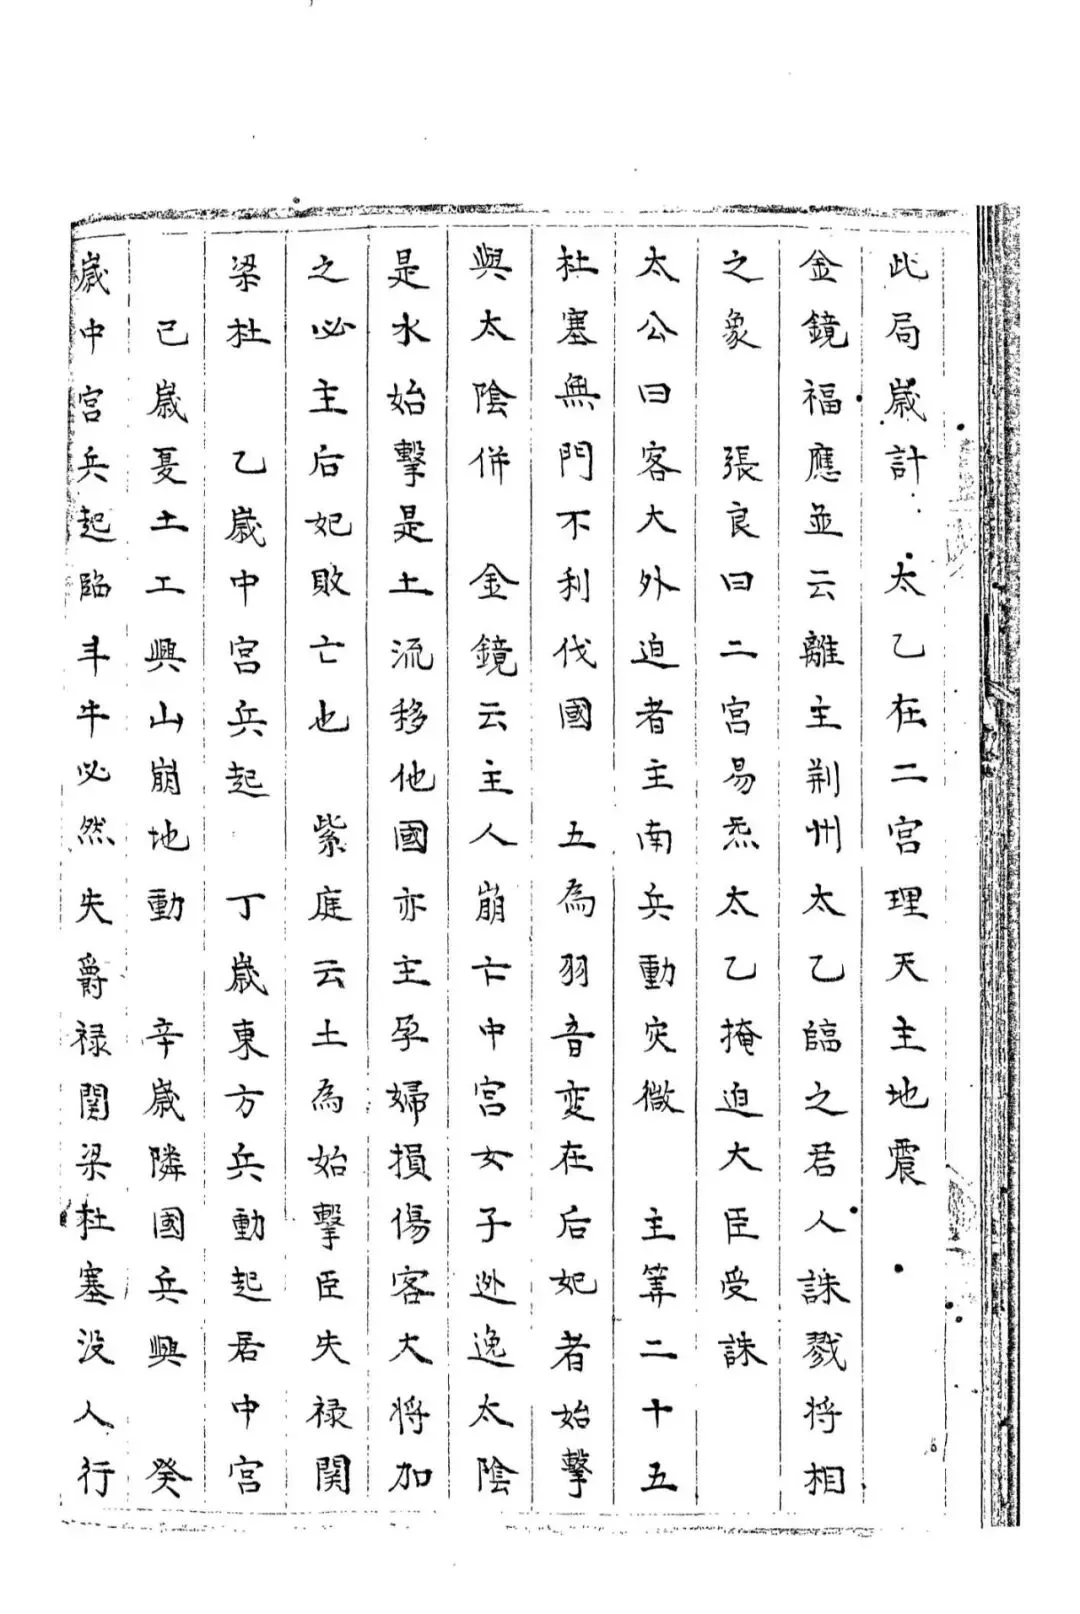 此局歲計　太乙在二宮理天主地震
金鏡福應並云離主荆州太乙臨之君人誅戮将相
之象　張良曰二宮易炁太乙掩迫大臣受誅
太公曰客大外迫者主南兵動灾徵　主筭二十五
杜塞無門不利伐國　五為羽音变在后妃者始擊
與太陰併　金鏡云主人崩亡中宮女子迯逸太陰
是水始擊是土流移他國亦主孕婦損傷客大将加
之必主后妃敗亡也　紫庭云土為始擊臣失禄関
梁杜　乙歲中宮兵起　丁歲東方兵動起居中宮
己歲憂土工興山崩地動　辛歲隣國兵興　癸
歲中宮兵起臨斗牛必然失爵禄関梁杜塞没人行